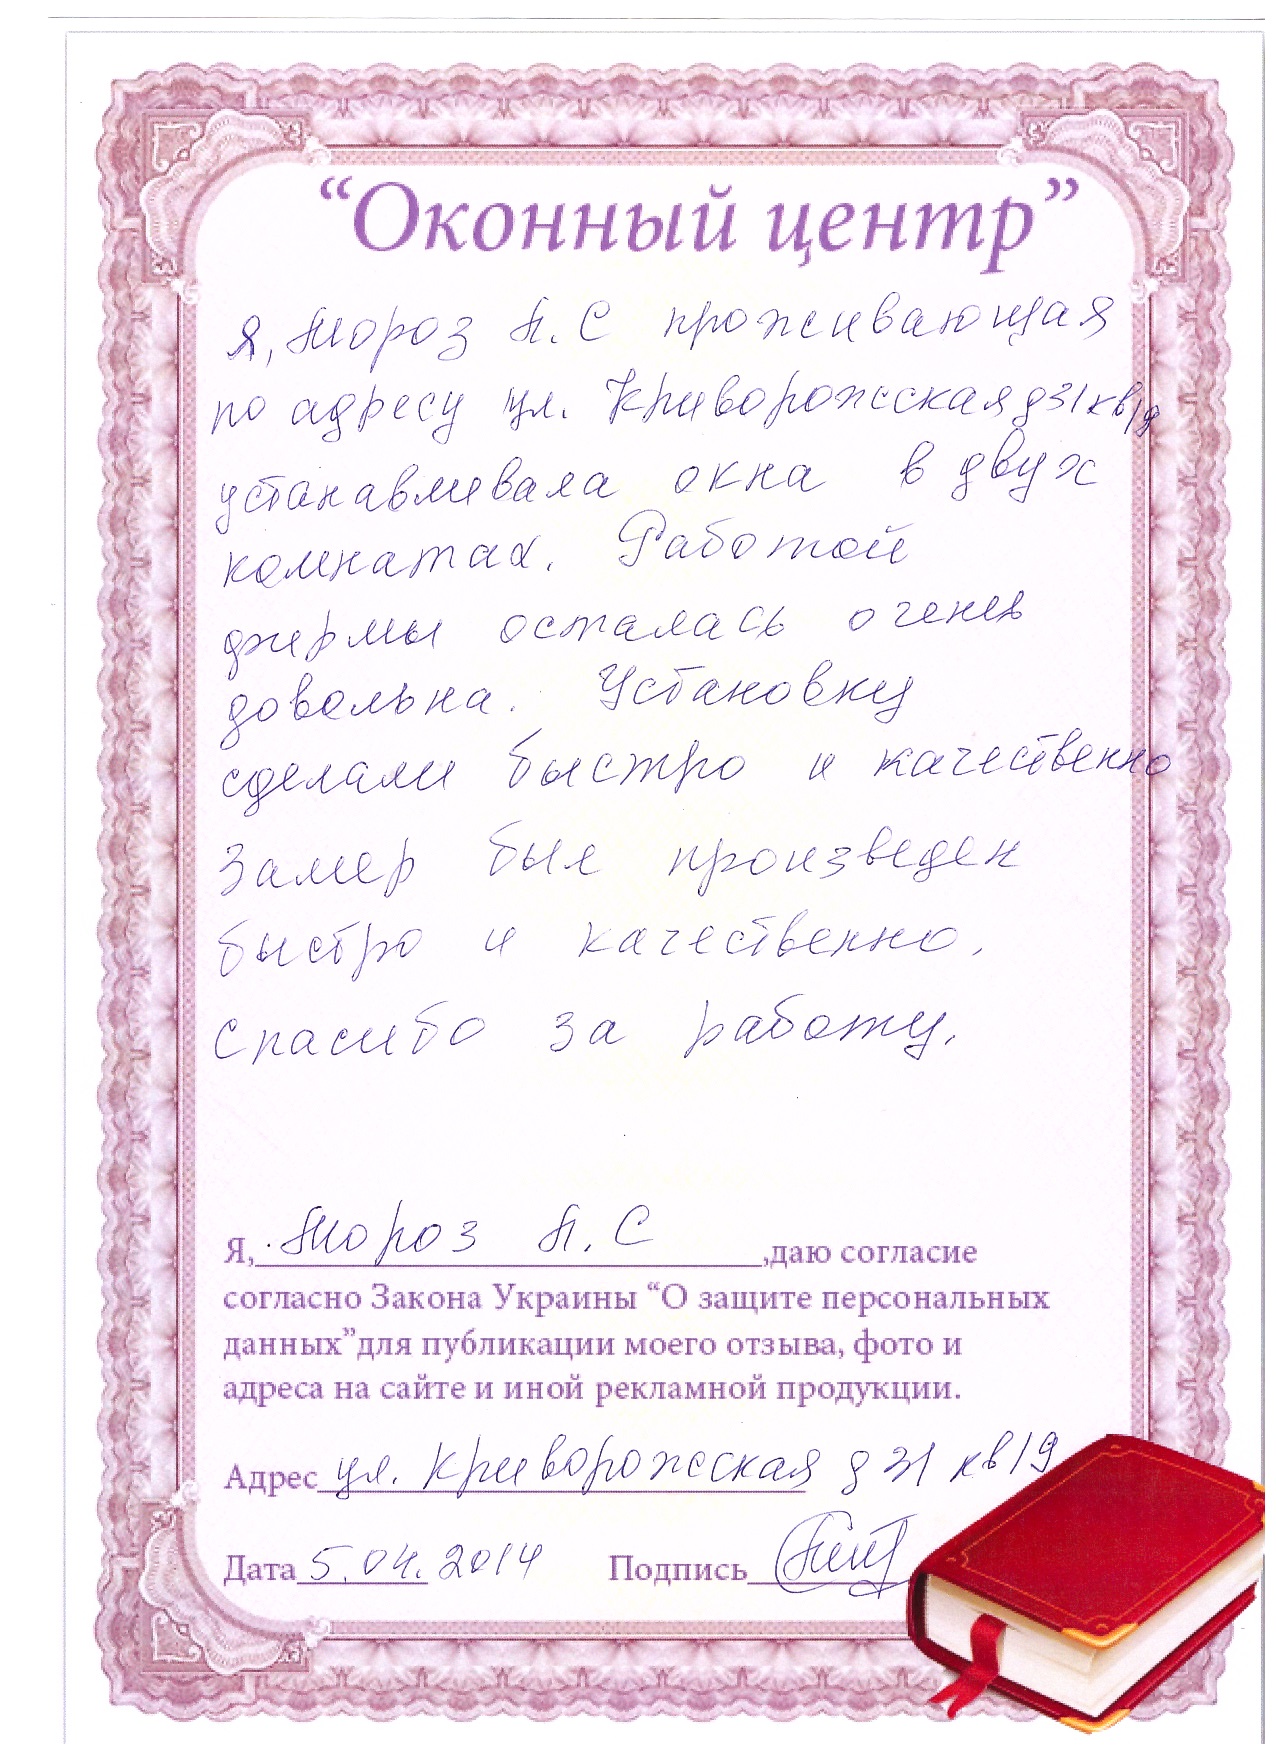 “Оконный центр”
Я, Мороз А. С проживающая
по адресу ул. Криворожсская д 31 кв 19
устанавливала окна в двух
комнатах. Работой
фирмы осталась очень
довольна. Установку
сделали быстро и качественно
Замер был произведен
быстро и качественно.
Спасибо за работу.
Я, Мороз А. С ,даю согласие
согласно Закона Украины “О защите персональных
данных”для публикации моего отзыва, фото и
адреса на сайте и иной рекламной продукции.
Адрес ул. Криворожсская д 31 кв 19
Дата 5.04.2014 Подпись